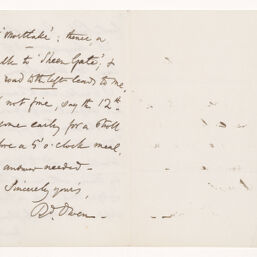 'Mortlake'; thence, a
to 'Sheen Gate', &
road to the left leads to me,
not fine, say the 12th
come early for a stroll
a 5 o'clock meal.
answer needed –
Sincerely yours,
Rd. Owen –